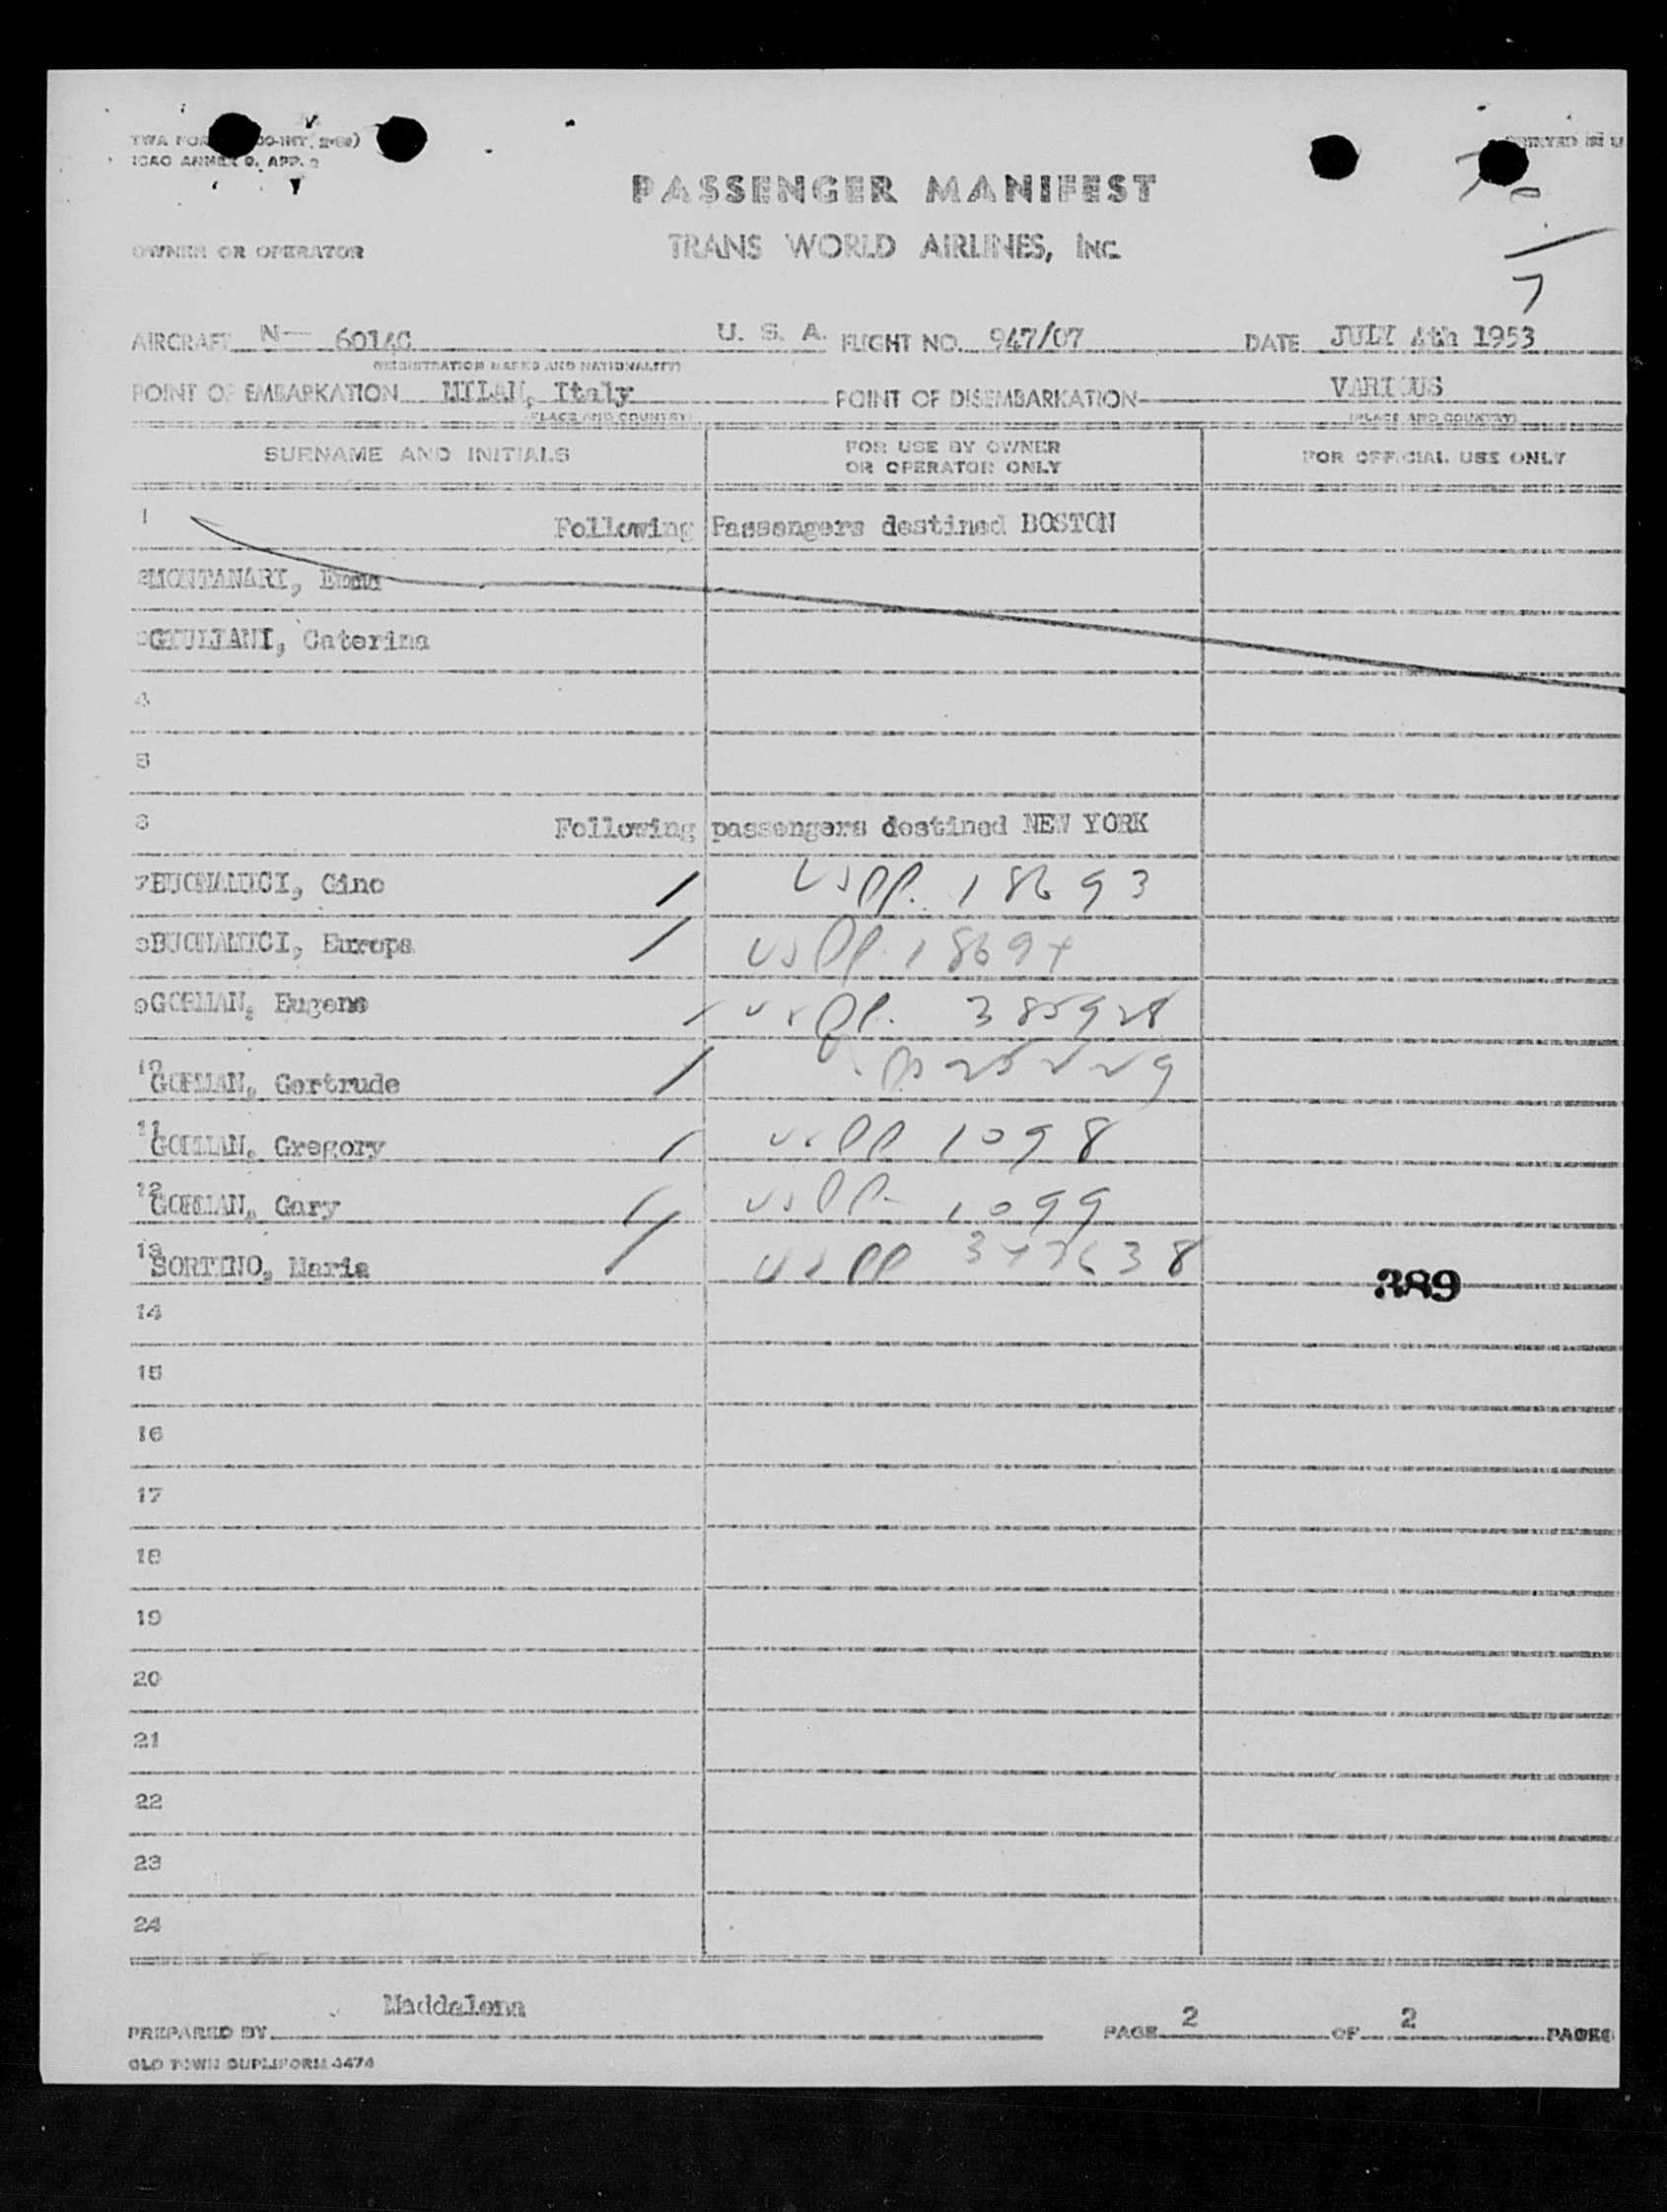 ICAO ANNEX 9, APP. 3
PASSENGER MANIFEST
OWNER OR OPERATOR TRANS WORLD AIRLINES, INC.
7
AIRCRAFT N- 6014C U. S. A. FLIGHT NO. 947/07 DATE JULY 4th 1953
(REGISTRATION MARKS AND NATIONALITY)
POINT OF EMBARKATION MILAN, Italy POINT OF DISEMBARKATION VARIOUS
(PLACE AND COUNTRY) (PLACE AND COUNTRY)
SURNAME AND INITIALS FOR USE BY OWNER OR OPERATOR ONLY FOR OFFICIAL USE ONLY
1 Following Passengers destined BOSTON
2 MONTANARI,
3 GIULIANI, Caterina
4
5
6 Following passengers destined NEW YORK
7 BUONAMICI, Gino USPP. 18693
8 BUONAMICI, Europa USPP. 18694
9 GORMAN, Eugene USPP. 385928
10 GORMAN, Gertrude
11 GORMAN, Gregory USPP 1098
12 GORMAN, Gary USPP. 1099
13 SORTINO, Maria USPP
389
14
15
16
17
18
19
20
21
22
23
24
PREPARED BY Maddalena PAGE 2 OF 2 PAGES
OLD TOWN DUPLIFORM 4474